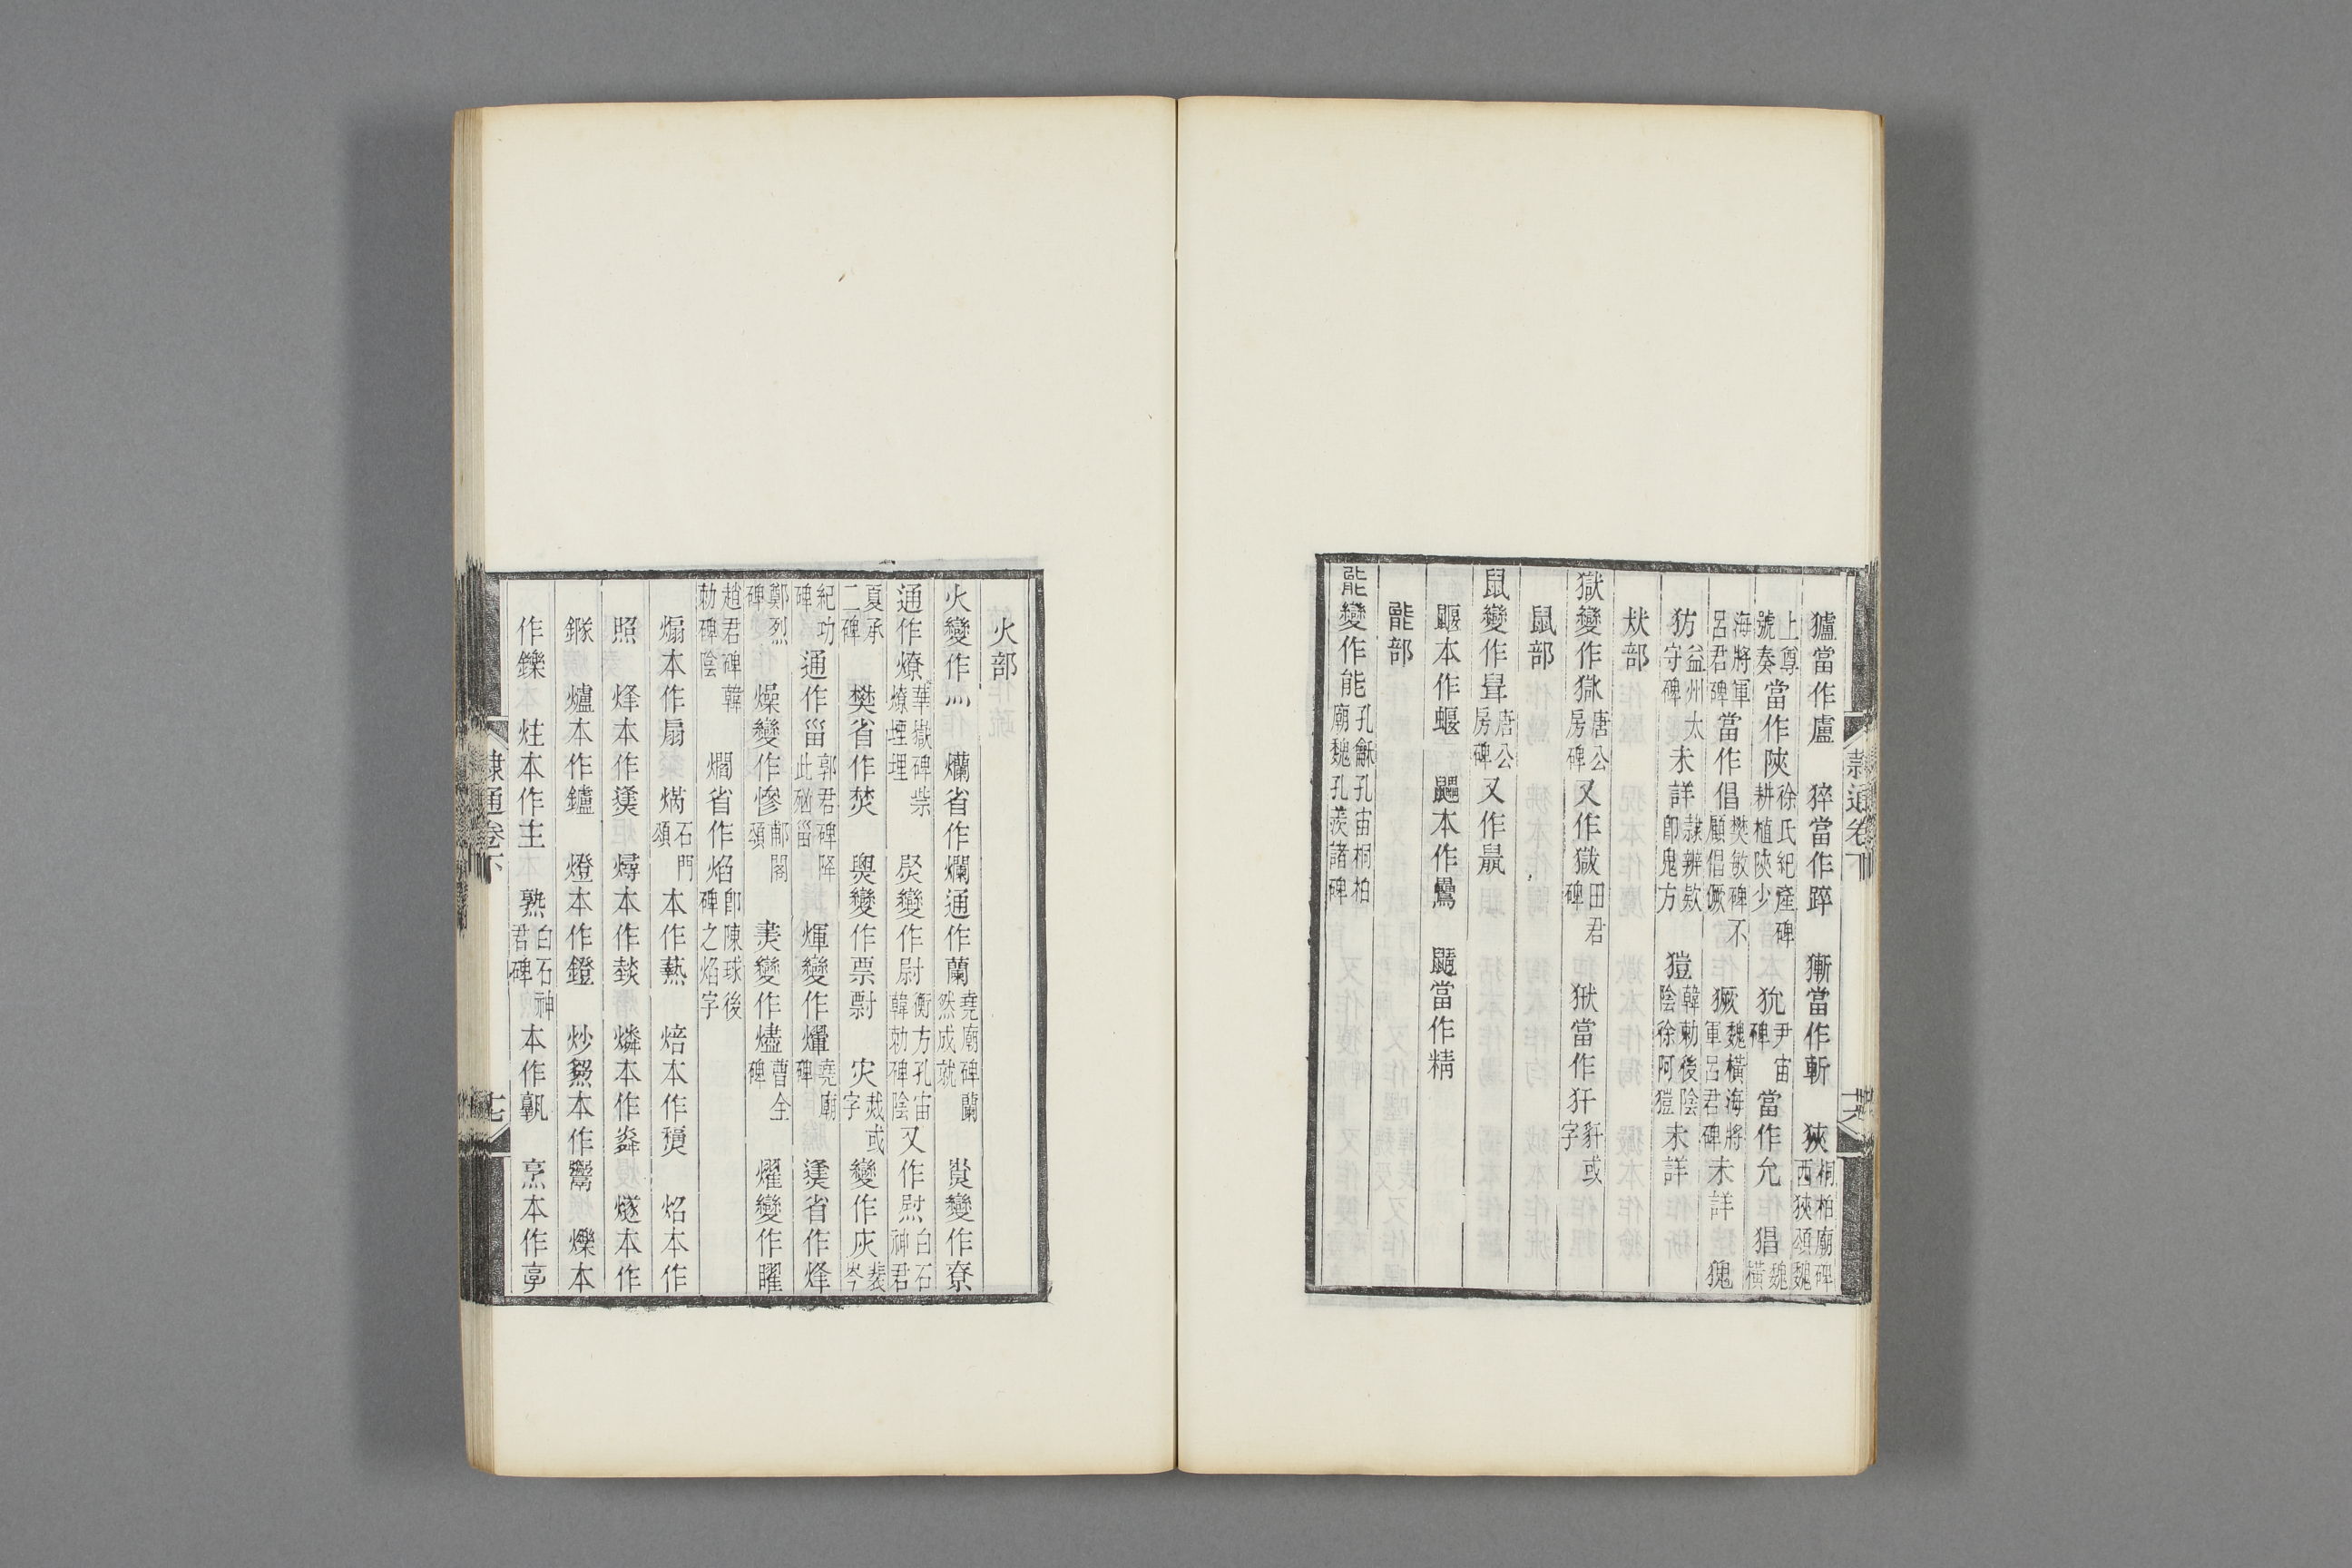 獹當作盧　猝當作踤　獑當作斬　狹桐柏廟碑西狹頌魏
上尊號奏當作陜徐氏紀產碑耕植陜少　狁尹宙碑當作允　猖魏橫
海將軍呂君碑當作倡樊敏碑不顧倡獗　獗魏橫海將軍呂君碑未詳　猑
犺益州太守碑未詳隷辨欵卽鬼方　獊韓勅後陰陰徐阿獊未詳
㹜部
獄變作𤞞唐公房碑又作㺉田君碑　猌當作犴豻或字
鼠部
鼠變作𡴬唐公房碑又作鼡
鼴本作蝘　鼺本作鸓　鼱當作精
能部
能變作能孔龢孔宙桐柏廟魏孔羨諸碑
隷通卷下
火部
火變作灬　爤省作爛通作蘭堯廟碑蘭然成就　尞變作寮
通作燎華嶽碑柴燎堙理　㷉變作尉衡方孔宙韓勅碑陰又作熨白石神君
夏承二碑　樊省作焚　㷠變作票剽　灾烖或字變作灰裴岑
紀功碑通作甾郭君碑降此殃甾　煇變作㷷堯廟碑　㷭省作烽
鄭烈碑　燥變作㦗郙閣頌　㶳變作燼曹全碑　燿變作曜
趙君碑韓勅碑陰　爓省作焰卽陳球後碑之焰字
煽本作扇　焫石門頌本作爇　焙本作㷶　炤本作
照　烽本作㷭　燖本作錟　燐本作粦　燧本作
䥙　爐本作鑪　燈本作鐙　炒㷅本作鬻　爍本
作鑠　炷本作主　熟白石神君碑本作孰　烹本作亯
隷通卷下